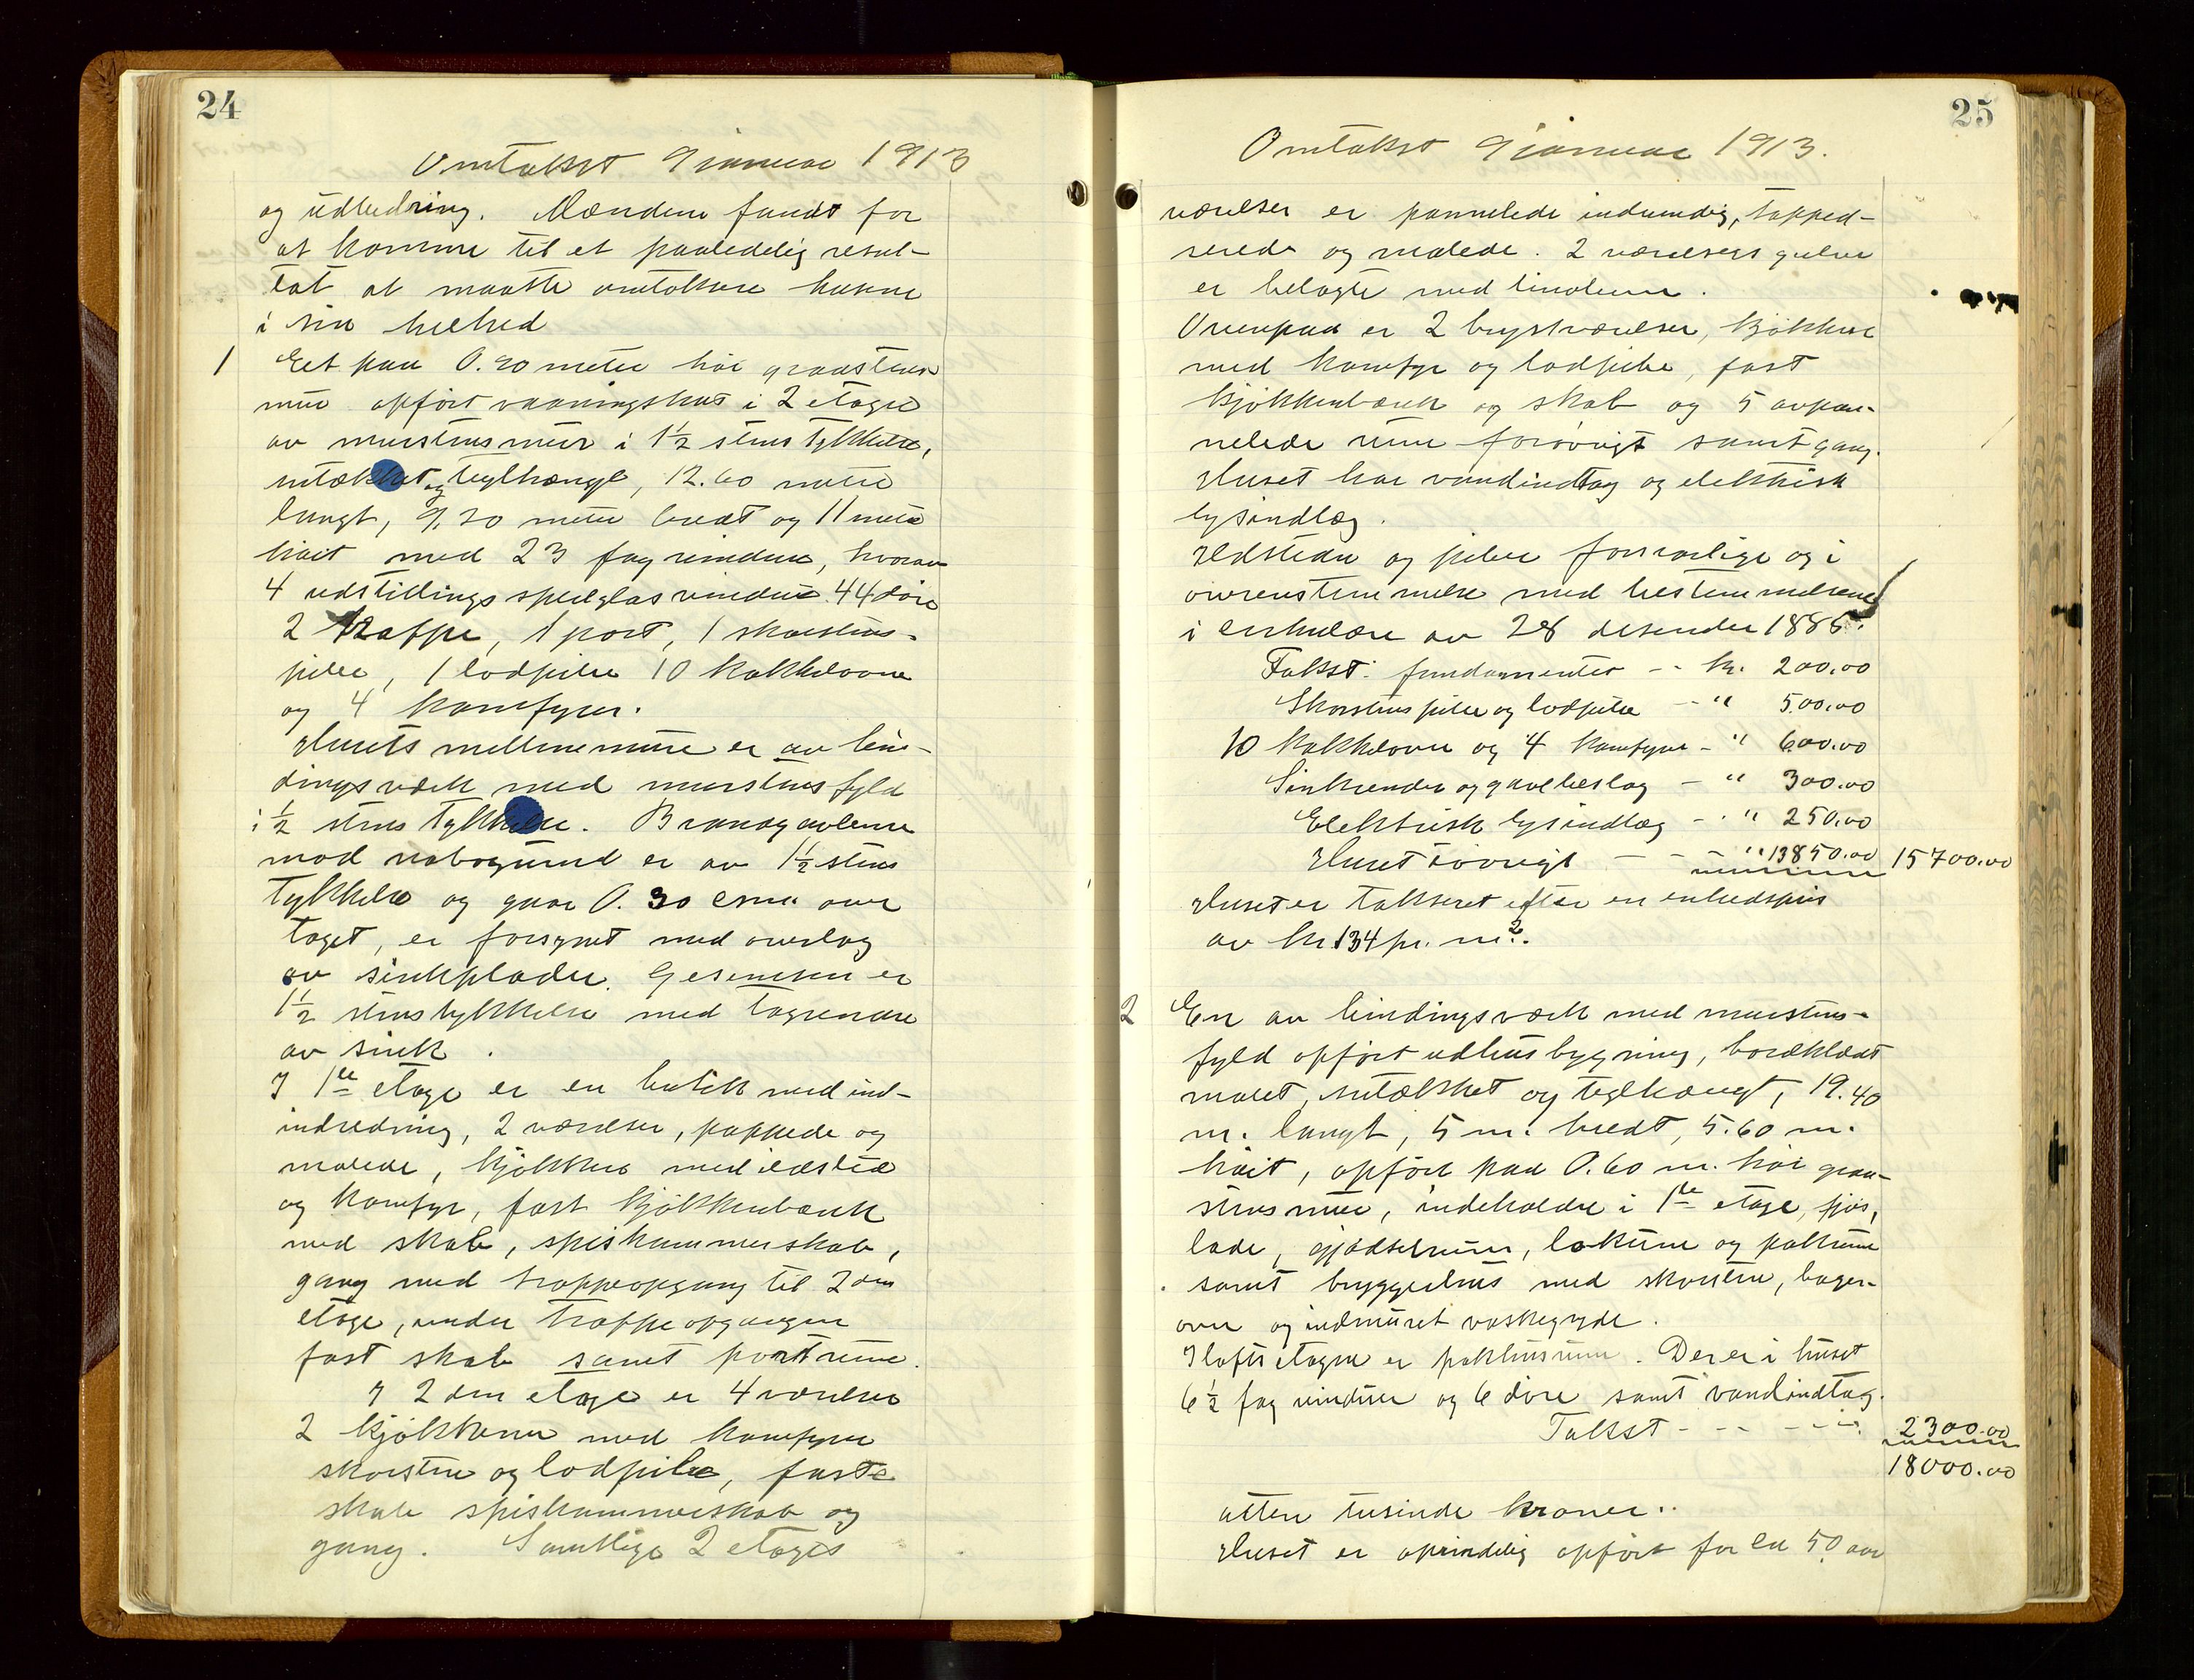 24
Omtakst 9 januar 1913
og utbedring. Mændene fandt for
at komme til et paalidelig resul-
tat at maatte omtaksere husene
i sin helhed
1 Et paa 0.90 meter høi graastens
mur opført vaaningshus i 2 etager
av murstensmur i 1½ stens tykkelse,
sutækket og teglhængt, 12.60 meter
langt, 9.20 meter bredt og 11 meter
høit med 23 fag vinduer, hvorav
4 udstillings speilglasvinduer. 44 døre
2 trapper, 1 port, 1 skorstens-
pibe, 1 lodpibe 10 kakkelovne
og 4 komfyrer.
Husets mellemmure er av bin-
dingsværk med murstensfyld
i ½ stens tykkelse. Brandgavlerne
mod nabogrund er av 1½ stens
tykkelse og gaar 0.30 cm over
taget, er forsynet med overlag
av sinkplader. Gesimsen er
1½ stens tykkelse med tagrender
av sink.
I 1ste etage er en butik med ind-
indredning, 2 værelser, pappede og
malede, kjøkken med ildsted
og komfyr, fast kjøkkenbænk
med skab, spiskammerskab,
gang med trappeopgang til 2den
etage, under trappeopgangen
fast skab samt portrum.
I 2den etage er 4 værelser
2 kjøkkener med komfyrer
skorsten og lodpibe, faste
skabe spiskammerskab og
gang. Samtlige 2 etages
25
Omtakst 9 januar 1913.
værelser er pannelede indvendig, tapped-
serede og malede. 2 værelsers gulve
er belagte med linoleum.
Ovenpaa er 2 brystværelser, kjøkken
med komfyr og lodpibe, fast
kjøkkenbænk og skab og 5 avpan-
nelede rum forøvrigt samt gang.
Huset har vandindtag og elektrisk
lysindlæg.
Ildsteder og piber forsvarlige og i
overensstemmelse med bestemmelserne
i cirkulære av 28 desember 1886.
Takst: fundamenter - - kr. 200.00
Skorstens piber og lodpibe - " 500.00
10 kakkelovne og 4 komfyrer - " 600.00
Sinkrender og gavlbeslag - " 300.00
Elektrisk lysindlæg - - " 250.00
Huset iøvrigt - - - " 13850.00 15700.00
Huset er takseret efter en enhedspris
av kr 134 pr. m².
2 En av bindingsværk med murstens-
fyld opført udhusbygning, bordklædt
malet, sutækket og teglhængt, 19.40
m. langt, 5 m. bredt, 5.60 m.
høit, opført paa 0.60 m. høi graa-
stens mur, indeholder i 1ste etage, fjøs,
lade, gjødselrum, lokum og pakrum
samt bryggerhus med skorsten, bager-
ovn og indmuret vaskegryde.
I loftsetagen er pakhusrum. Der er i huset
6½ fag vinduer og 6 døre samt vandindtag.
Takst - - - - - 2300.00
18000.00
atten tusinde kroner..
Huset er oprindelig opført for ca 50 aar